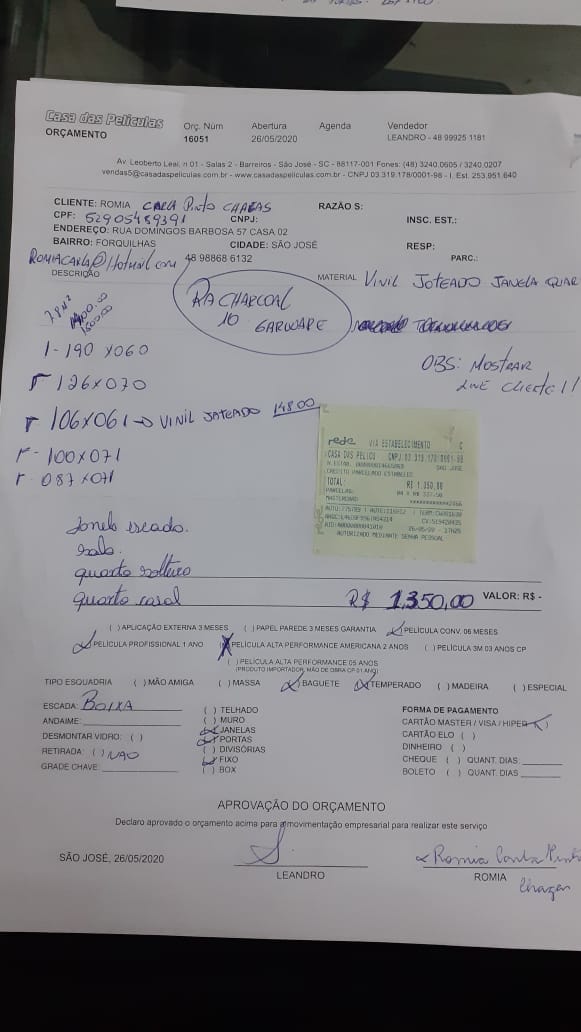 Casa das Películas
ORÇAMENTO
Orç. Núm
16051
Abertura
26/05/2020
Agenda
Vendedor
LEANDRO - 48 99925 1181
Av. Leoberto Leal, n 01 - Salas 2 - Barreiros - São José - SC - 88117-001 Fones: (48) 3240.0605 / 3240.0207
vendas5@casadaspeliculas.com.br - www.casadaspeliculas.com.br - CNPJ 03.319.178/0001-98 - I. Est. 253.951.640
CLIENTE: ROMIA CARLA Pinto CHAGAS RAZÃO S:
CPF: 52905489391 CNPJ: INSC. EST.:
ENDEREÇO: RUA DOMINGOS BARBOSA 57 CASA 02
BAIRRO: FORQUILHAS CIDADE: SÃO JOSÉ RESP:
ROMIACARLA@Hotmail.com 48 98868 6132 PARC.:
DESCRIÇÃO
MATERIAL VINIL JOTEADO JANELA QUAR
RA CHARCOAL
10 GARWARE
1-190 X 060
OBS: MOSTRAR
Cliente !!
126 X 070
106X061 → VINIL JATEADO 148.00
100 X 071
087 X 071
rede VIA ESTABELECIMENTO
CASA DAS PELICU CNPJ:03.319.178/0001-98
SAO JOSE
CREDITO PARCELADO ESTABELEC
TOTAL: R$ 1.350,00
PARCELAS: 04 X R$ 337,50
MASTERCARD
AUTORIZADO MEDIANTE SENHA PESSOAL
Janela escada.
sala.
quarto solteiro
quarto casal R$ 1.350,00 VALOR: R$ -
( ) APLICAÇÃO EXTERNA 3 MESES ( ) PAPEL PAREDE 3 MESES GARANTIA ( ) PELÍCULA CONV. 06 MESES
PELÍCULA PROFISSIONAL 1 ANO PELÍCULA ALTA PERFORMANCE AMERICANA 2 ANOS ( ) PELÍCULA 3M 03 ANOS CP
( ) PELÍCULA ALTA PERFORMANCE 05 ANOS
(PRODUTO IMPORTADOR, MÃO DE OBRA CP 01 ANO)
TIPO ESQUADRIA ( ) MÃO AMIGA ( ) MASSA ( ) BAGUETE ( ) TEMPERADO ( ) MADEIRA ( ) ESPECIAL
ESCADA: BAIXA
ANDAIME:
DESMONTAR VIDRO: ( )
RETIRADA: ( ) NAO
GRADE CHAVE:
( ) TELHADO
( ) MURO
JANELAS
PORTAS
( ) DIVISÓRIAS
FIXO
( ) BOX
FORMA DE PAGAMENTO
CARTÃO MASTER / VISA / HIPER
CARTÃO ELO ( )
DINHEIRO ( )
CHEQUE ( ) QUANT. DIAS:
BOLETO ( ) QUANT. DIAS
APROVAÇÃO DO ORÇAMENTO
Declaro aprovado o orçamento acima para a movimentação empresarial para realizar este serviço
SÃO JOSÉ, 26/05/2020
LEANDRO
Romia Carla Pinto
ROMIA
Chagas